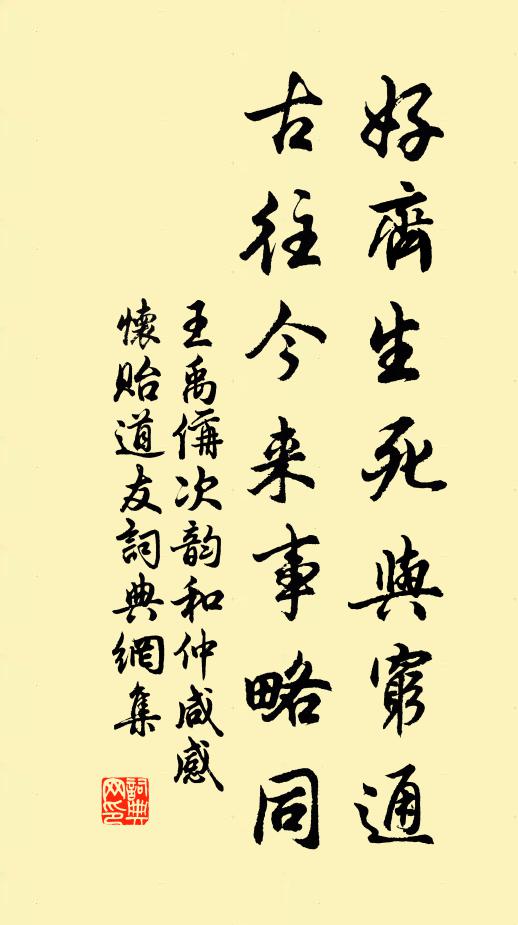 好齊生死與窮通
古往今来事略同
王禹偁次韵和仲咸感
懷貽道友詞典網集
詞典
网印